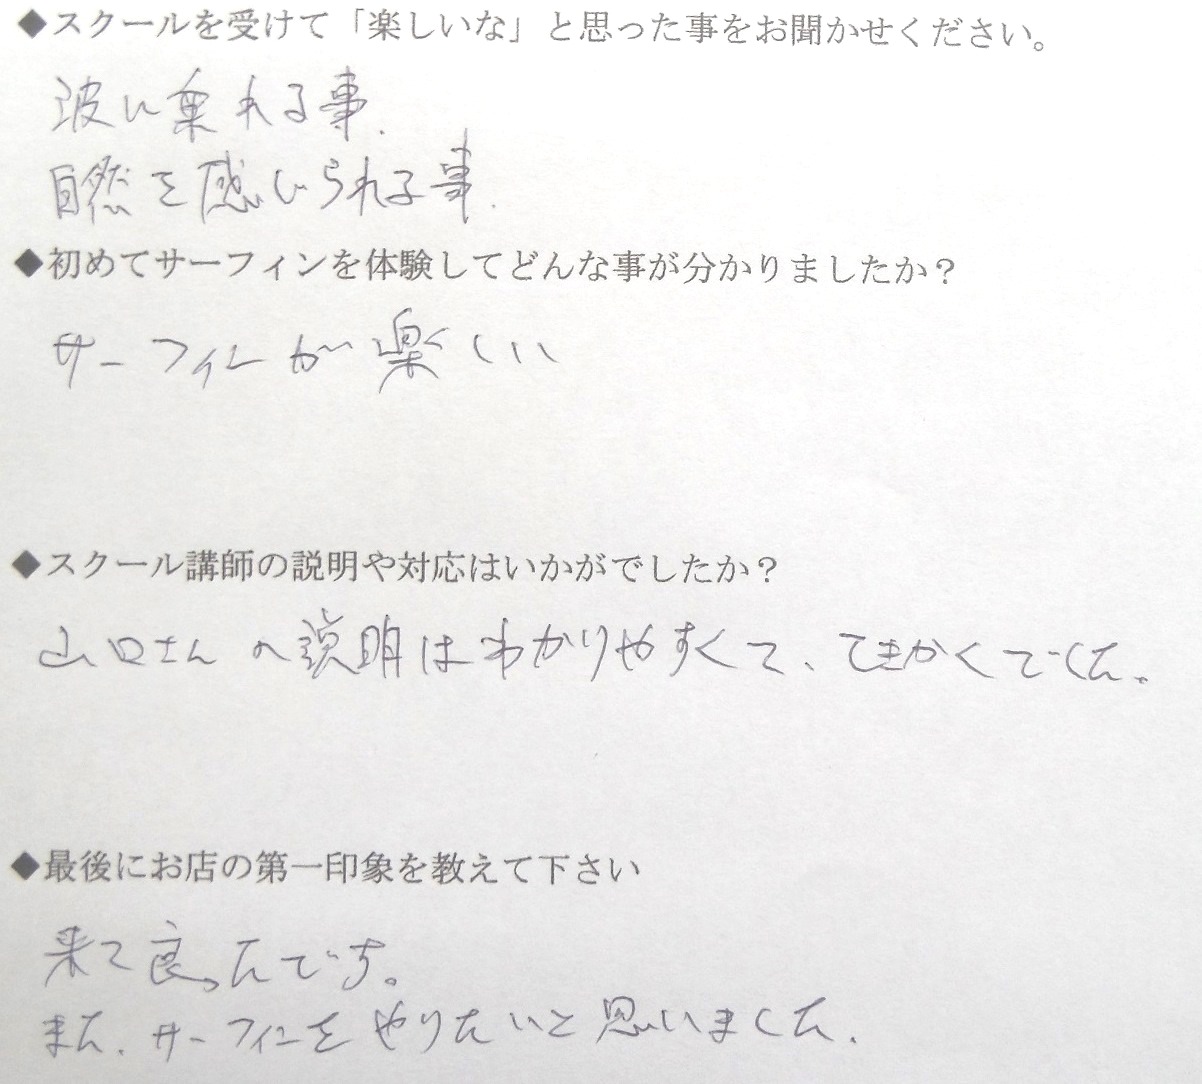 ◆スクールを受けて「楽しいな」と思った事をお聞かせください。
波に乗れる事.
自然を感じられる事.
◆初めてサーフィンを体験してどんな事が分かりましたか？
サーフィンが楽しい
◆スクール講師の説明や対応はいかがでしたか？
山口さんの説明はわかりやすくて、てきかくでした。
◆最後にお店の第一印象を教えて下さい
来て良ったです。
また、サーフィンをやりたいと思いました.